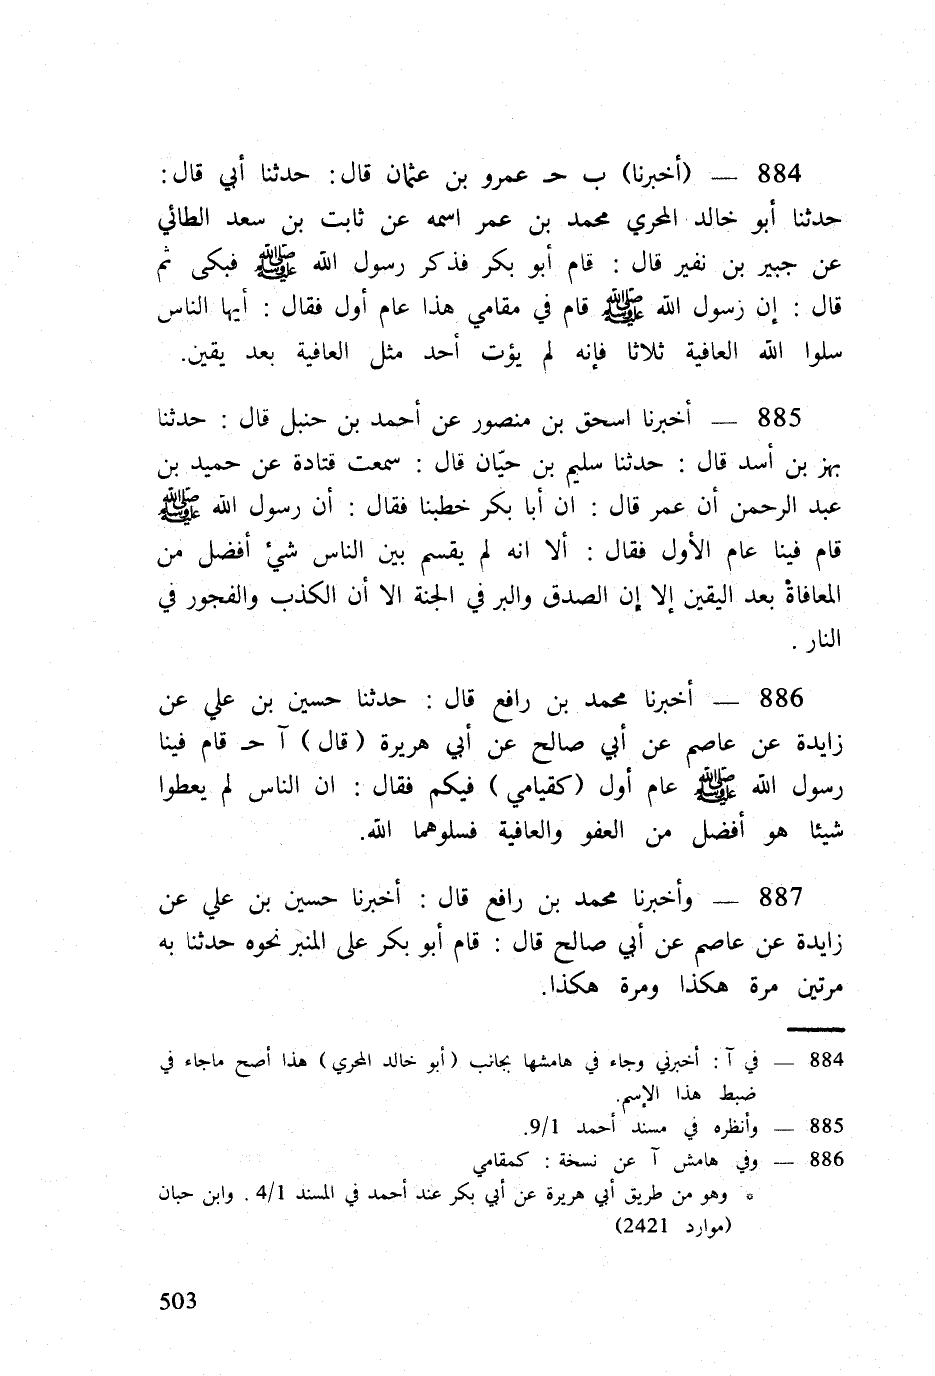 884 — (أخبرنا) ب حـ عمرو بن عثمان قال : حدثنا أبي قال :
حدثنا أبو خالد المحري محمد بن عمر اسمه عن ثابت بن سعد الطائي
عن جبير بن نفير قال : قام أبو بكر فذكر رسول الله ﷺ فبكى ثم
قال : إن رسول الله ﷺ قام في مقامي هذا عام أول فقال : أيها الناس
سلوا الله العافية ثلاثا فإنه لم يؤت أحد مثل العافية بعد يقين.
885 — أخبرنا اسحق بن منصور عن أحمد بن حنبل قال : حدثنا
بهز بن أسد قال : حدثنا سليم بن حيّان قال : سمعت قتادة عن حميد بن
عبد الرحمن أن عمر قال : ان أبا بكر خطبنا فقال : أن رسول الله ﷺ
قام فينا عام الأول فقال : ألا انه لم يقسم بين الناس شيء أفضل من
المعافاة بعد اليقين إلا إن الصدق والبر في الجنة الا أن الكذب والفجور في
النار .
886 — أخبرنا محمد بن رافع قال : حدثنا حسين بن علي عن
زايدة عن عاصم عن أبي صالح عن أبي هريرة (قال) آ حـ قام فينا
رسول الله ﷺ عام أول (كقيامي) فيكم فقال : ان الناس لم يعطوا
شيئا هو أفضل من العفو والعافية فسلوهما الله.
887 — وأخبرنا محمد بن رافع قال : أخبرنا حسين بن علي عن
زايدة عن عاصم عن أبي صالح قال : قام أبو بكر على المنبر نحوه حدثنا به
مرتين مرة هكذا ومرة هكذا.
884 — في آ : أخبرني وجاء في هامشها بجانب (أبو خالد المحري) هذا أصح ماجاء في
ضبط هذا الإسم.
885 — وأنظره في مسند أحمد 9/1.
886 — وفي هامش آ عن نسخة : كمقامي
* وهو من طريق أبي هريرة عن أبي بكر عند أحمد في المسند 4/1 . وابن حبان
(موارد 2421)
503